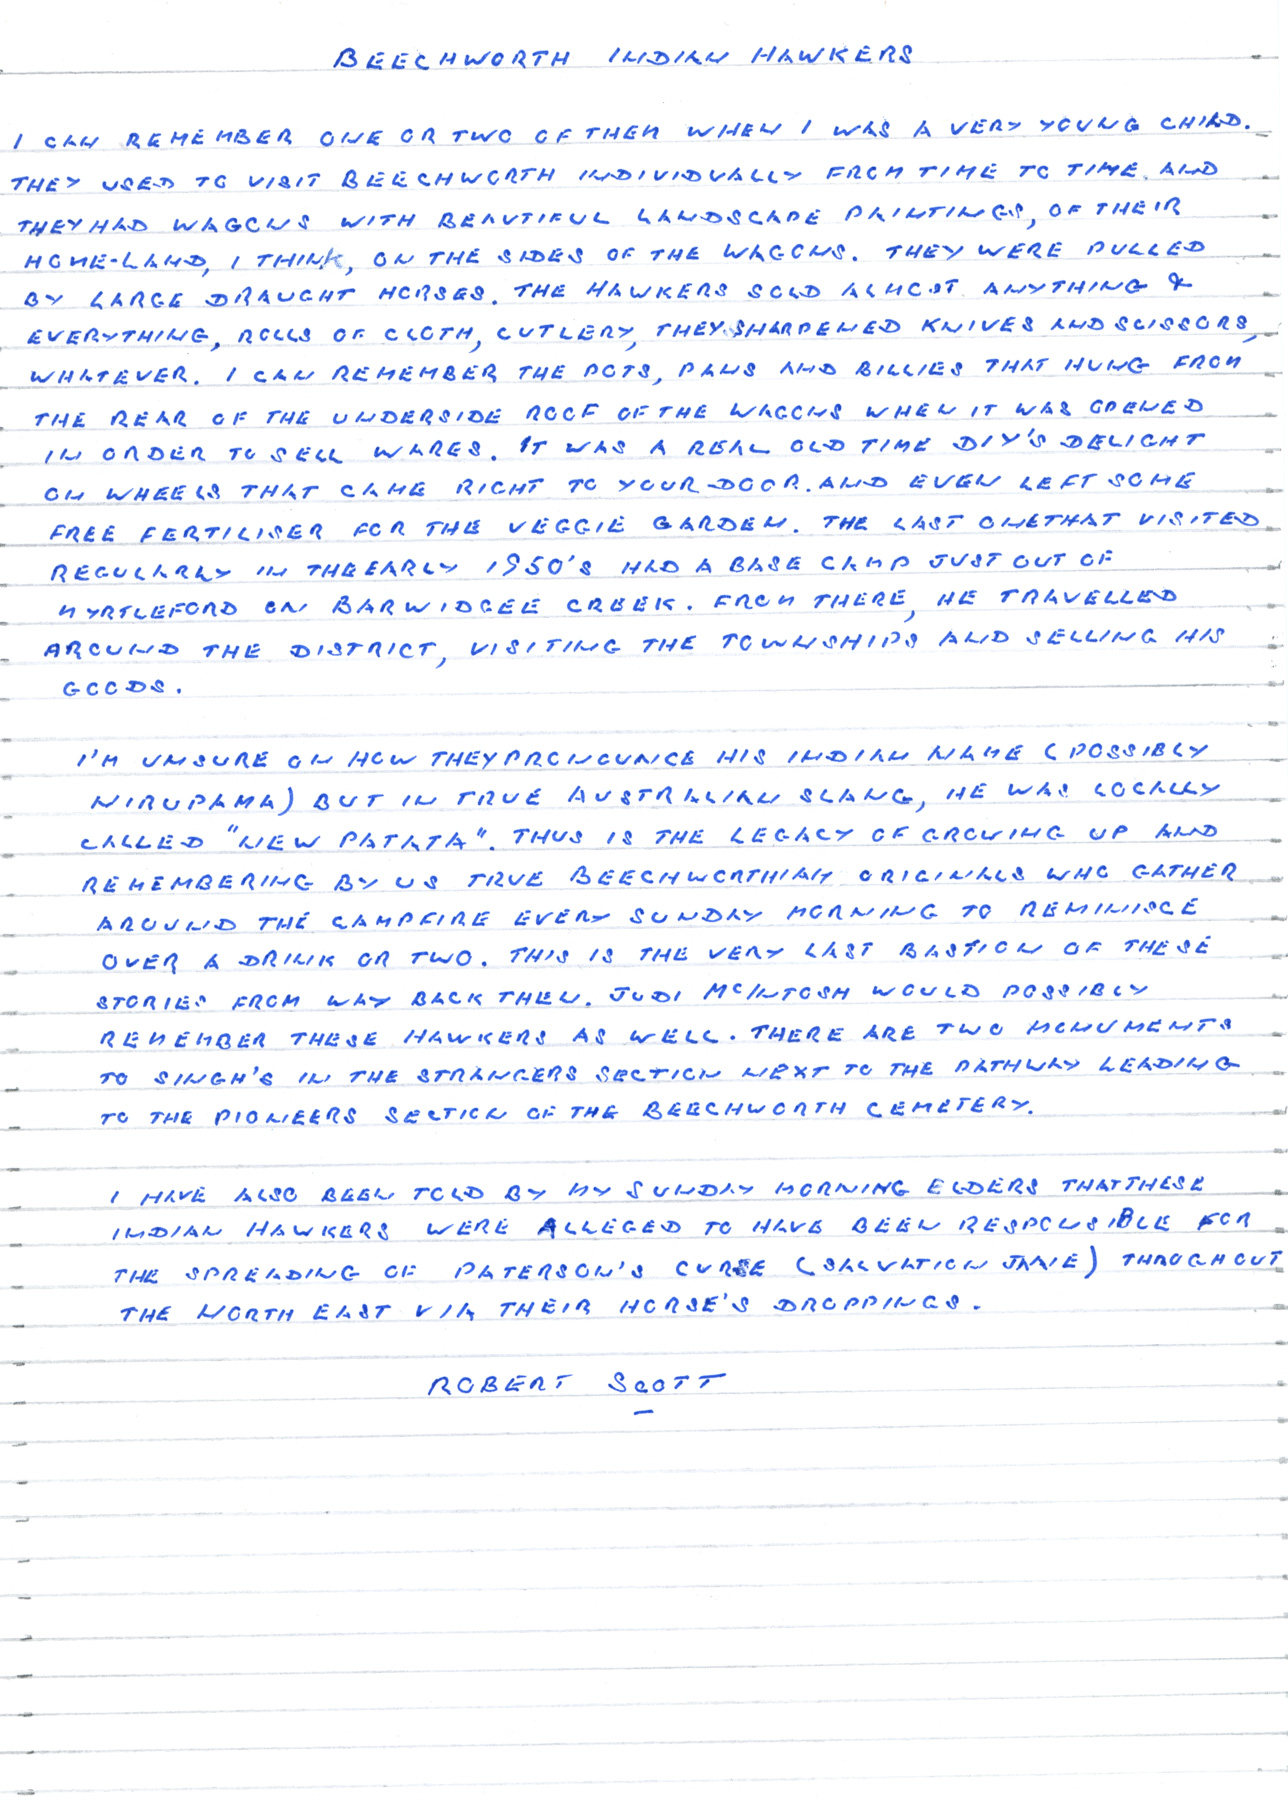 BEECHWORTH INDIAN HAWKERS
I CAN REMEMBER ONE OR TWO OF THEM WHEN I WAS A VERY YOUNG CHILD.
THEY USED TO VISIT BEECHWORTH INDIVIDUALLY FROM TIME TO TIME. AND
THEY HAD WAGONS WITH BEAUTIFUL LANDSCAPE PAINTINGS, OF THEIR
HOME-LAND, I THINK, ON THE SIDES OF THE WAGONS. THEY WERE PULLED
BY LARGE DRAUGHT HORSES. THE HAWKERS SOLD ALMOST ANYTHING &
EVERYTHING, ROLLS OF CLOTH, CUTLERY, THEY SHARPENED KNIVES AND SCISSORS,
WHATEVER. I CAN REMEMBER THE POTS, PANS AND BILLIES THAT HUNG FROM
THE REAR OF THE UNDERSIDE ROOF OF THE WAGONS WHEN IT WAS OPENED
IN ORDER TO SELL WARES. IT WAS A REAL OLD TIME DIY'S DELIGHT
ON WHEELS THAT CAME RIGHT TO YOUR DOOR. AND EVEN LEFT SOME
FREE FERTILISER FOR THE VEGGIE GARDEN. THE LAST ONE THAT VISITED
REGULARLY IN THE EARLY 1950'S HAD A BASE CAMP JUST OUT OF
MYRTLEFORD ON BARWIDGEE CREEK. FROM THERE, HE TRAVELLED
AROUND THE DISTRICT, VISITING THE TOWNSHIPS AND SELLING HIS
GOODS.
I'M UNSURE ON HOW THEY PRONOUNCE HIS INDIAN NAME (POSSIBLY
NIRUPAMA) BUT IN TRUE AUSTRALIAN SLANG, HE WAS LOCALLY
CALLED "NEW PATATA". THUS IS THE LEGACY OF GROWING UP AND
REMEMBERING BY US TRUE BEECHWORTHIAN ORIGINALS WHO GATHER
AROUND THE CAMPFIRE EVERY SUNDAY MORNING TO REMINISCE
OVER A DRINK OR TWO. THIS IS THE VERY LAST BASTION OF THESE
STORIES FROM WAY BACK THEN. JUDI McINTOSH WOULD POSSIBLY
REMEMBER THESE HAWKERS AS WELL. THERE ARE TWO MONUMENTS
TO SINGH'S IN THE STRANGERS SECTION NEXT TO THE PATHWAY LEADING
TO THE PIONEERS SECTION OF THE BEECHWORTH CEMETERY.
I HAVE ALSO BEEN TOLD BY MY SUNDAY MORNING ELDERS THAT THESE
INDIAN HAWKERS WERE ALLEGED TO HAVE BEEN RESPONSIBLE FOR
THE SPREADING OF PATERSON'S CURSE (SALVATION JANE) THROGHOUT
THE NORTH EAST VIA THEIR HORSE'S DROPPINGS.
ROBERT SCOTT